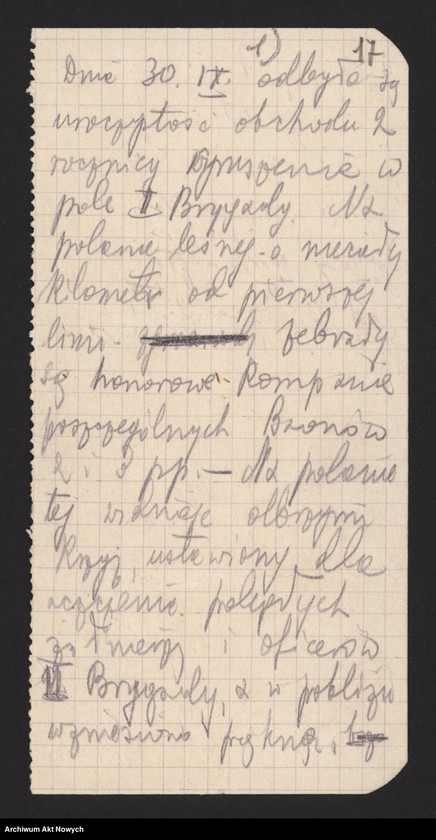 1) 17
Dnia 30. IX. odbyła się
uroczystość obchodu 2
rocznicy wyruszenia w
pole II Brygady. Na
polanie leśnej - o niecały
kilometr od pierwszej
linii - zebrały
się honorowe kompanie
poszczególnych Baonów
2 i 3 pp. — Na polanie
tej widnieje olbrzymi
krzyż, ustawiony dla
uczczenia poległych
żołnierzy i oficerów
II Brygady, a w pobliżu
wzniesiono piękną,
Archiwum Akt Nowych